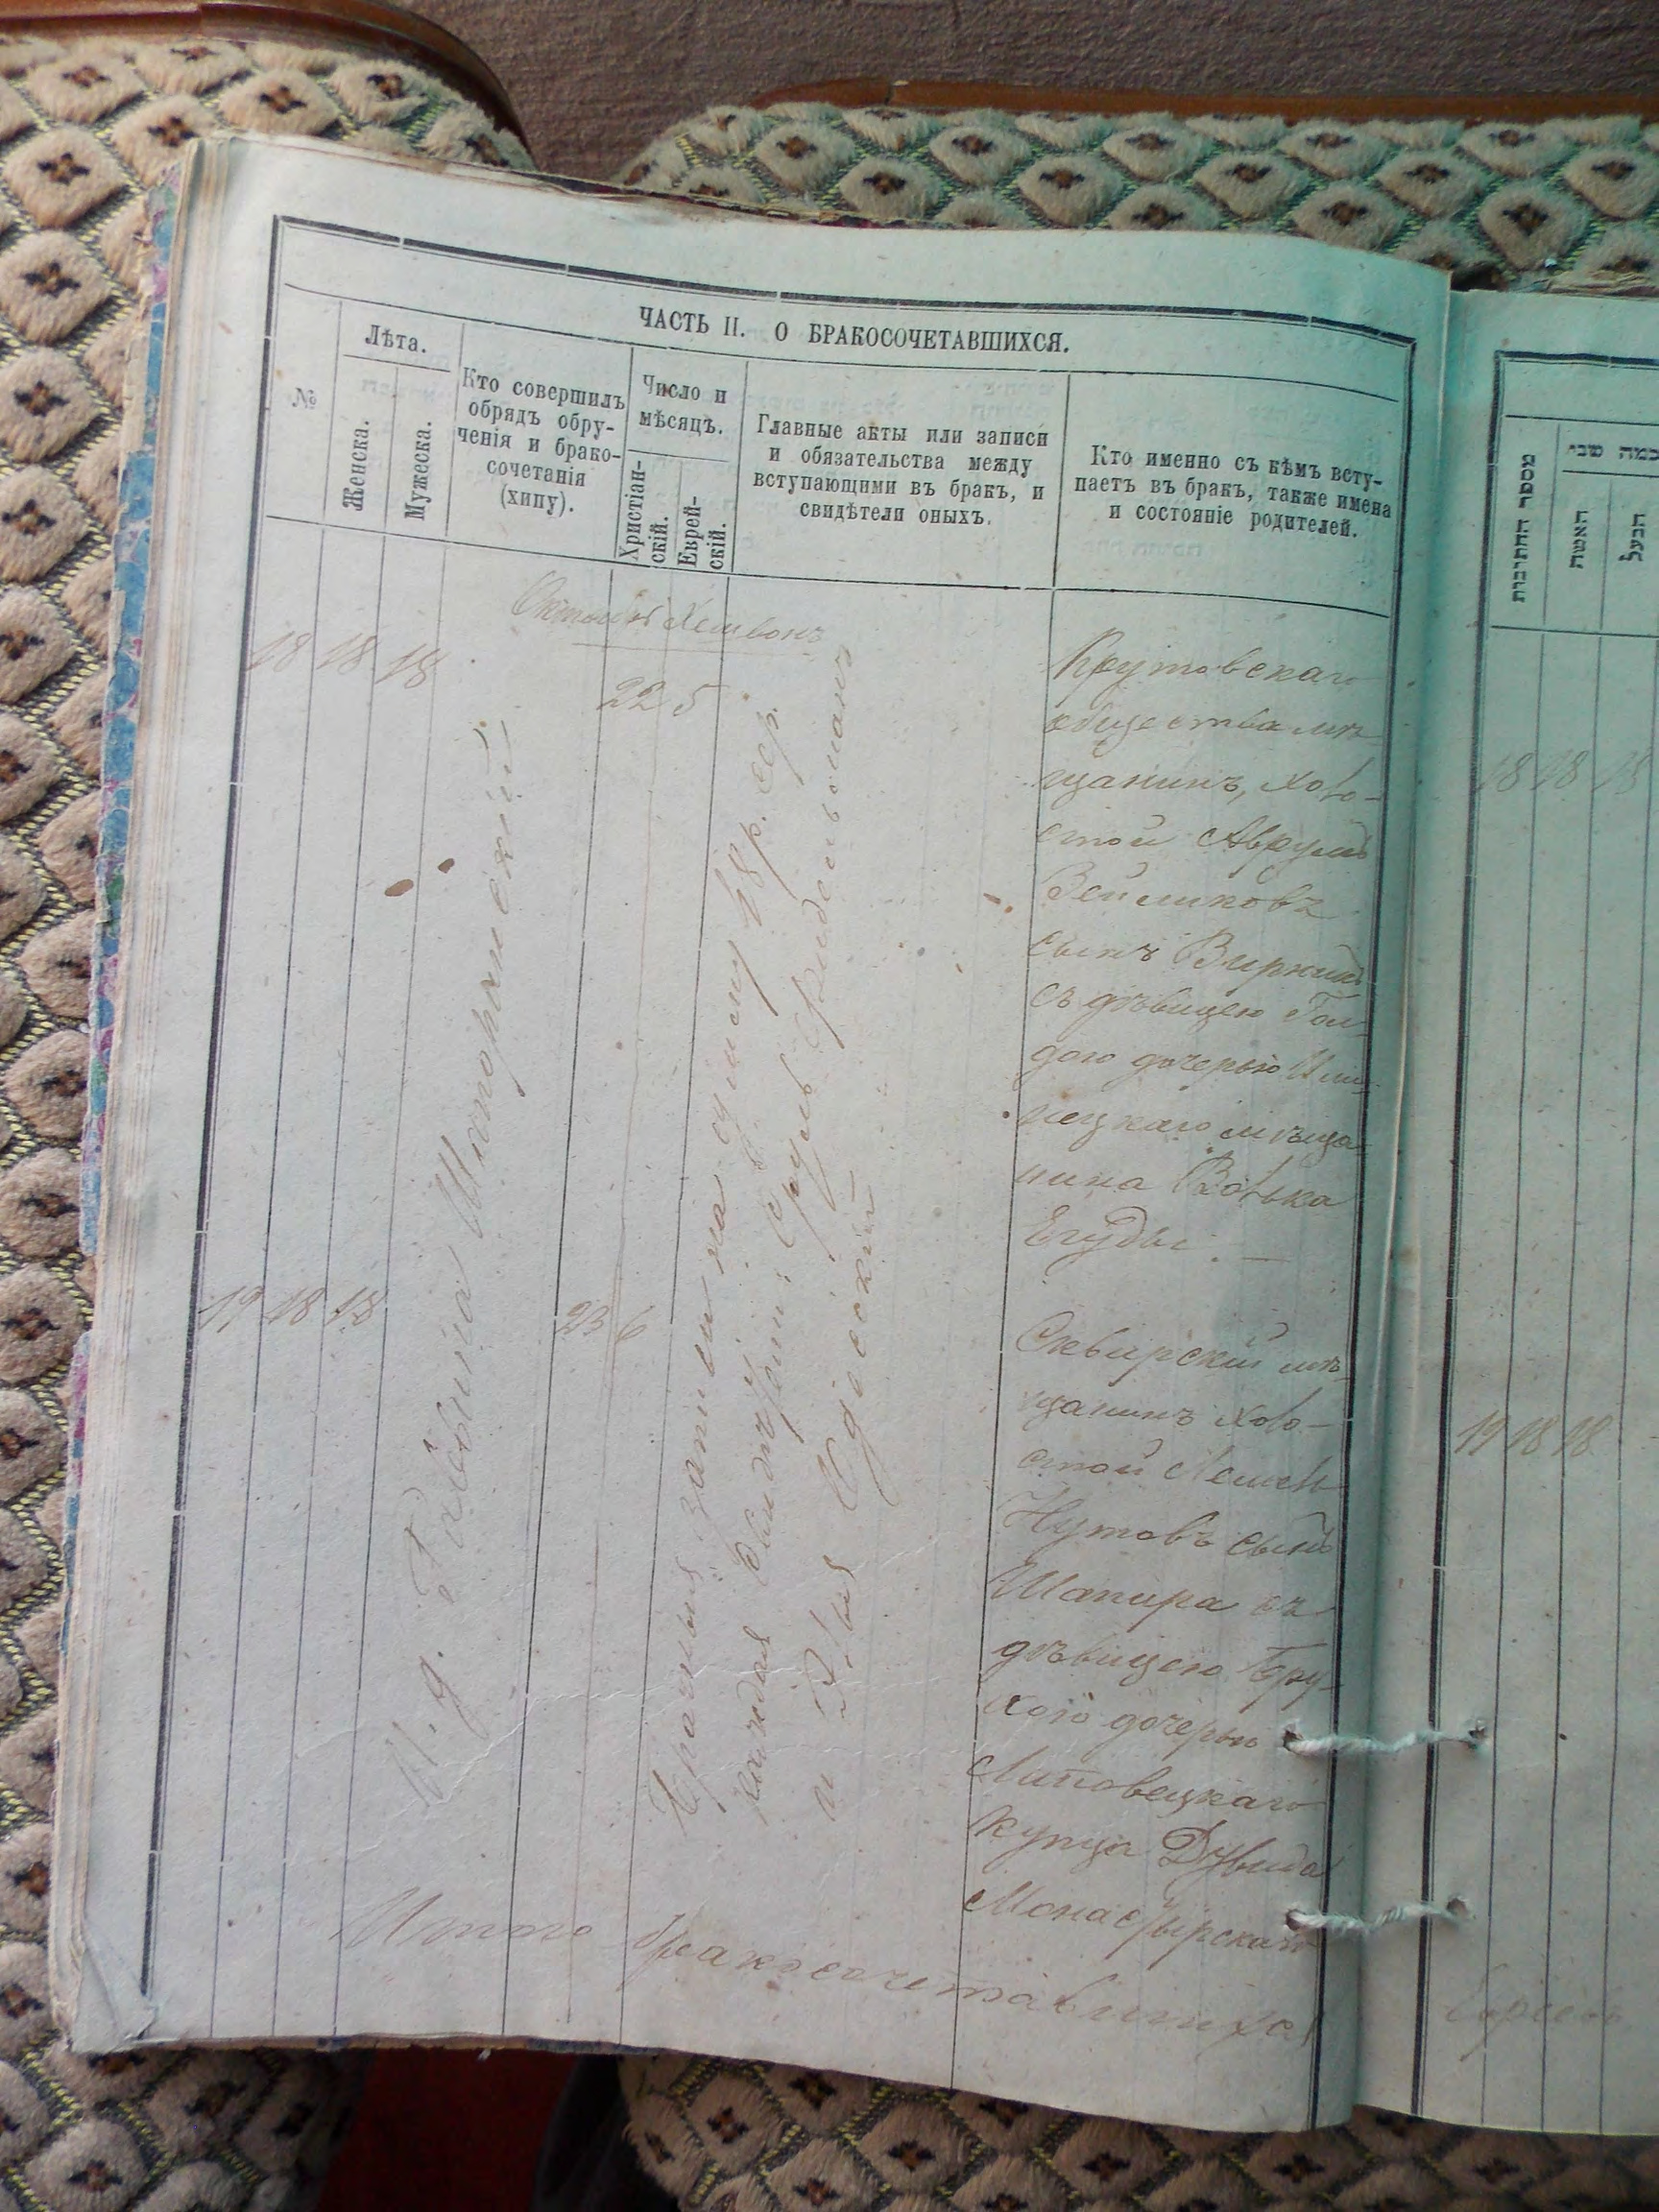 ЧАСТЬ II. О БРАКОСОЧЕТАВШИХСЯ.
№
Лѣта.
Женска.
Мужеска.
Кто совершилъ
обрядъ обру-
ченія и брако-
сочетанія
(хипу).
Число и
мѣсяцъ.
Христіан-
скій.
Еврей-
скій.
Главные акты или записи
и обязательства между
вступающими въ бракъ, и
свидѣтели оныхъ.
Кто именно съ кѣмъ всту-
паетъ въ бракъ, также имена
и состояніе родителей.
Октябрь Хешвонъ
18 18 18
22 5
И. д. Раввина Шторганскій
Брачныя записи на сумму 48 р. сер.
каждая Свидѣтели: Сруль Фридельманъ
и Одесскій
Крутовскаго
общества мѣ-
щанинъ, холо-
стой Аврумъ
Зейликовъ
сынъ
съ дѣвицею Гол
дою дочерью Или
нецкаго мѣща-
нина Волька
Егуды. —
19 18 18
23 6
Сквирскій мѣ-
щанинъ холо-
стой
Нутовъ сынъ
Шапира съ
дѣвицею Бру-
хою дочерью
Липовецкаго
купца Дувида
Монастырскаго
Итого бракосочетавшихся
מספר החתונות
כמה שני
האשה
הבעל
18 18 18
19 18 18